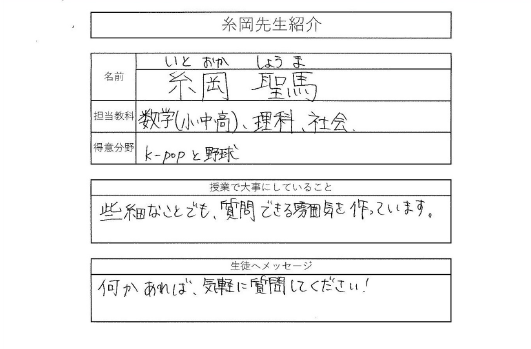 糸岡先生紹介
いと おか しょう ま
名前 糸岡 聖馬
担当教科 数学(小中高)、理科、社会.
得意分野 K-popと野球
授業で大事にしていること
些細なことでも、質問できる雰囲気を作っています。
生徒へメッセージ
何かあれば、気軽に質問してください!